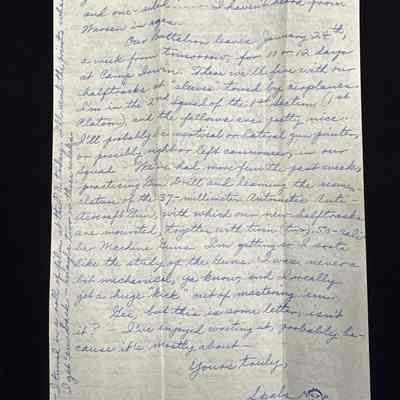 and one-sided I haven't heard from
Warren in ages.
Our Battalion leaves January 28th,
a week from tomorrow, for 10 or 12 days
at Camp Irwin. There we'll fire with our
halftracks at "sleeves" towed by airplanes.
I'm in the 2nd squad of the 1st Section (1st
Platoon), and the fellows are pretty nice.
I'll probably be vertical or lateral gun pointer,
or possibly right or left cannoneer, in our
squad. We've had more fun the past week,
practicing Gun Drill and learning the nomen-
clature of the 37-millimeter Automatic Anti-
Aircraft Gun, with which our new halftracks
are mounted, together with twin (two) .50-cali-
ber Machine Guns. I'm getting so I sorta
like the study of the Guns. I was never a
bit mechanical, ya know, and I really
get a huge "kick" out of mastering 'em.
Gee, but this is some letter, isn't
it? - I've enjoyed writing it, probably be-
cause it's mostly about -
Yours truly,
I turned in my roll of film at the I'll send the prints when
I get 'em back